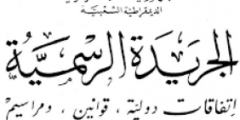 الديمقراطية الشعبية
الجريدة الرسمية
إتفاقات دولية ، قوانين ، ومراسيم